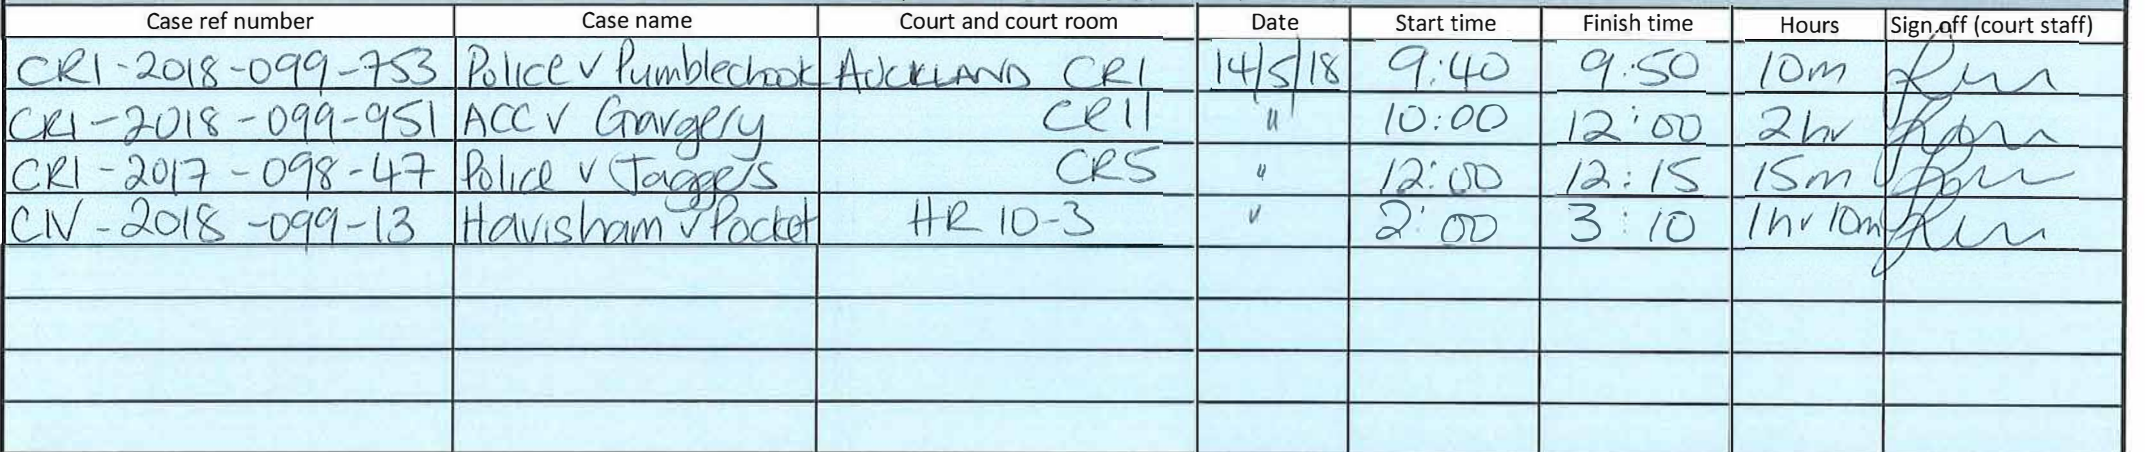 Case ref number Case name Court and court room Date Start time Finish time Hours Sign off (court staff)
CRI-2018-099-753 Police v Pumblechook AUCKLAND CR1 14/5/18 9:40 9:50 10m
CRI-2018-099-951 ACC v Gargery CR11 " 10:00 12:00 2hr
CRI-2017-098-47 Police v Jaggers CR5 " 12:00 12:15 15m
CIV-2018-099-13 Havisham v Pocket HR 10-3 " 2:00 3:10 1hr 10m